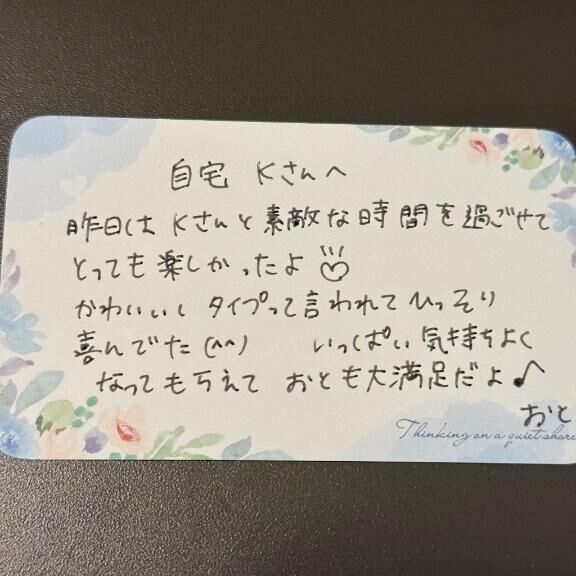 自宅 Kさんへ
昨日は Kさんと素敵な時間を過ごせて
とっても楽しかったよ
かわいいし タイプって言われて ひっそり
喜んでた (^^) いっぱい気持ちよく
なってもらえて おとも大満足だよ♪
おと
Thinking on a quiet shore